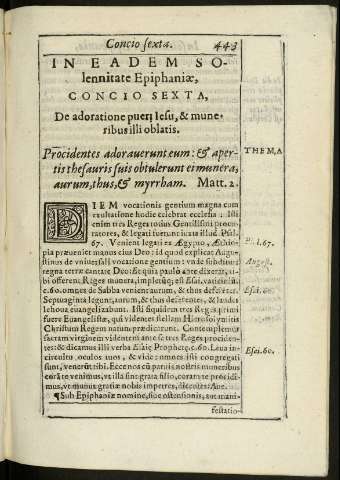 Concio sexta. 443
IN EADEM SO-
lennitate Epiphaniæ,
CONCIO SEXTA,
De adoratione pueri Iesu, & mune-
ribus illi oblatis.
Procidentes adorauerunt eum: & aper- THEMA
tis thesauris suis obtulerunt ei munera,
aurum, thus, & myrrham. Matt. 2.
DIEM vocationis gentium magna cum
exultatione hodie celebrat ecclesia: Isti
enim tres Reges totius Gentilismi procu-
ratores, & legati fuerunt iuxta illud Psal.
67. Venient legati ex Ægypto, Æthio-
pia præueniet manus eius Deo: id quod explicat Augu-
stinus de vniuersali vocatione gentium: vnde subditur:
regna terræ cantate Deo: Et quia paulò ante dixerat, ti-
bi offerent Reges munera, impletũ est Esai. vaticiniũ
c. 60. omnes de Sabba venient aurum, & thus deferẽtes.
Septuaginta legunt, aurum, & thus deferentes, & laudes
Iehoua euangelizabunt. Isti siquidem tres Regis primi
fuere Euangelistæ, qui videntes stellam Hierosolymitis
Christum Regem natum prædicarunt. Contemplemur
sacram virginem videntem ante se tres Reges prociden-
tes: & dicamus illi verba Esaiæ Prophetę. c. 60. Leua in
circuitu oculos tuos, & vide: omnes isti congregati
sunt, venerũt tibi. Ecce nos cũ paruis nostris muneribus
corã te venimus, vt illa sint grata filio, coram te procidi-
mus, vt munus gratiæ nobis impetres, dicẽtes: Aue.
¶ Sub Epiphaniæ nomine, siue ostensionis, aut mani-
festatio-
August.
Esai. 60.